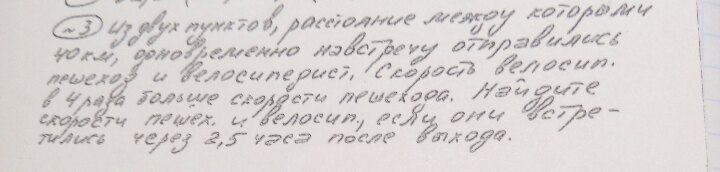 №3 Из двух пунктов, расстояние между которыми
40км, одновременно навстречу отправились
пешеход и велосипедист. Скорость велосип.
в 4 раза больше скорости пешехода. Найдите
скорости пешех. и велосип., если они встре-
тились через 2,5 часа после выхода.